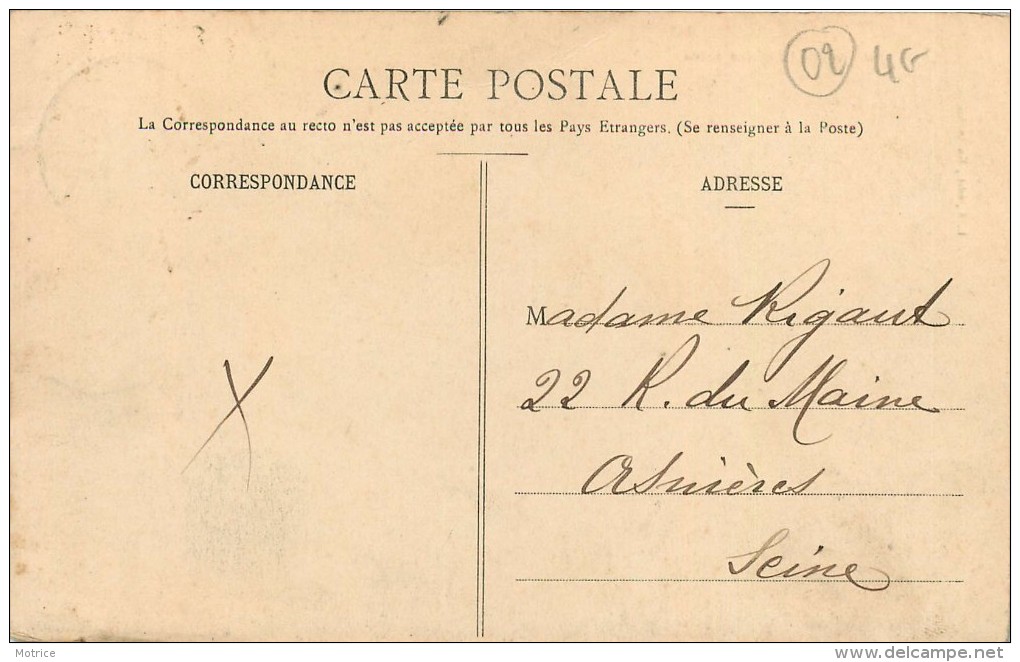 02 4€
CARTE POSTALE
La Correspondance au recto n'est pas acceptée par tous les Pays Etrangers. (Se renseigner à la Poste)
CORRESPONDANCE
ADRESSE
Madame Rigaut
22 R. du Maine
Asnières
Seine
Motrice
www.delcampe.net